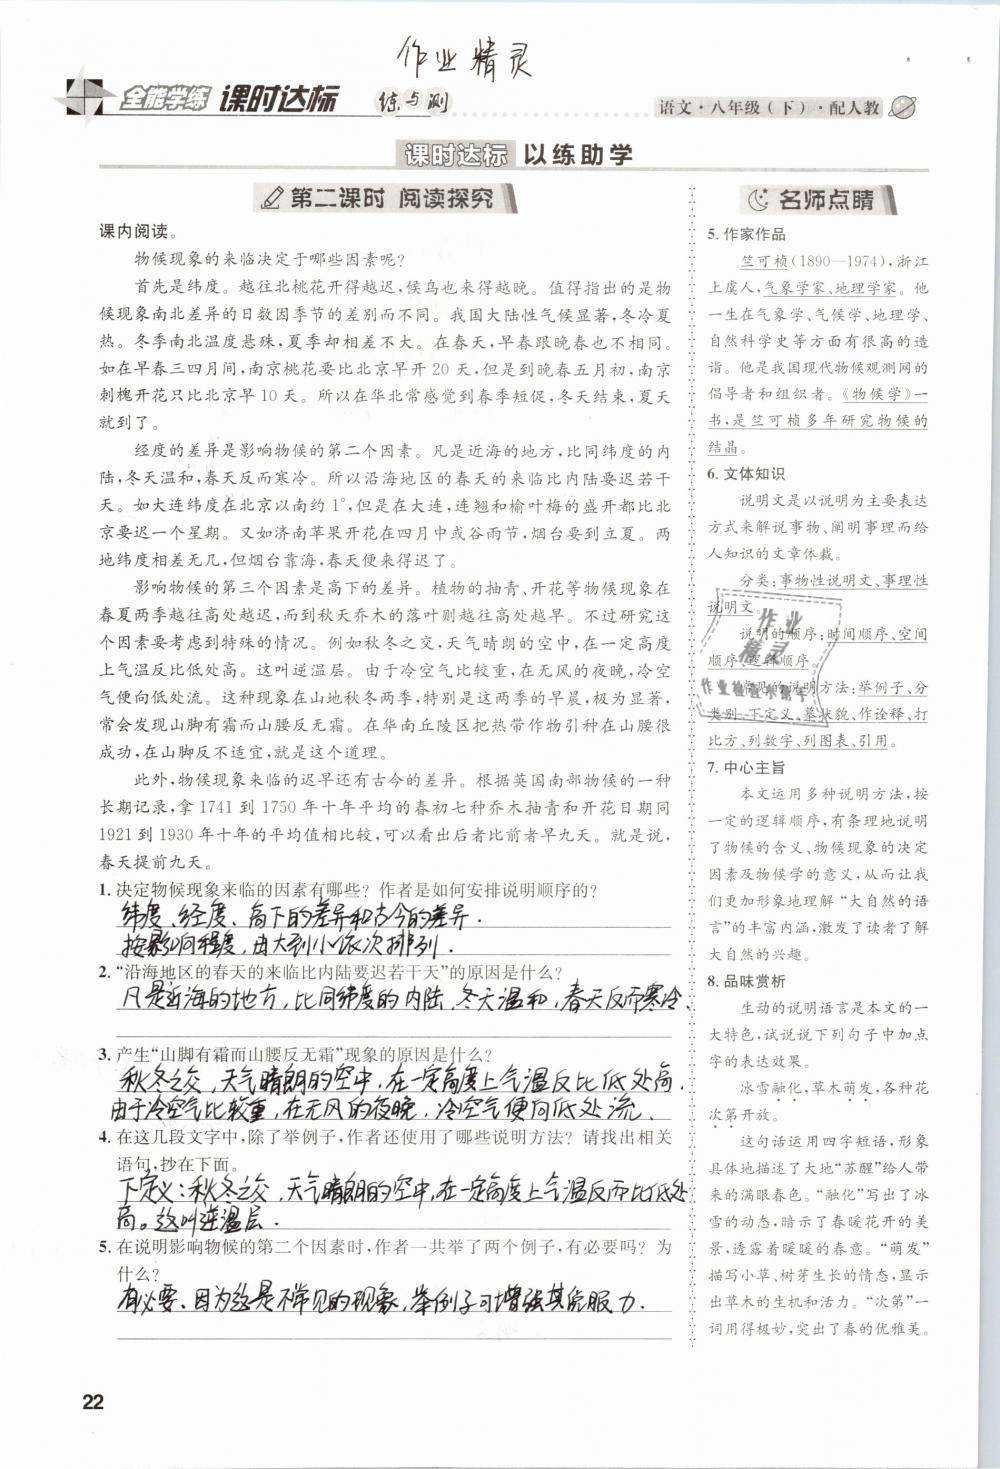 作业精灵
全能学练 课时达标 练与测
语文·八年级(下)·配人教
课时达标 以练助学
第二课时 阅读探究
课内阅读。
物候现象的来临决定于哪些因素呢?
首先是纬度。越往北桃花开得越迟,候鸟也来得越晚。值得指出的是物
候现象南北差异的日数因季节的差别而不同。我国大陆性气候显著,冬冷夏
热。冬季南北温度悬殊,夏季却相差不大。在春天,早春跟晚春也不相同。
如在早春三四月间,南京桃花要比北京早开 20 天,但是到晚春五月初,南京
刺槐开花只比北京早 10 天。所以在华北常感觉到春季短促,冬天结束,夏天
就到了。
经度的差异是影响物候的第二个因素。凡是近海的地方,比同纬度的内
陆,冬天温和,春天反而寒冷。所以沿海地区的春天的来临比内陆要迟若干
天。如大连纬度在北京以南约 1°,但是在大连,连翘和榆叶梅的盛开都比北
京要迟一个星期。又如济南苹果开花在四月中或谷雨节,烟台要到立夏。两
地纬度相差无几,但烟台靠海,春天便来得迟了。
影响物候的第三个因素是高下的差异。植物的抽青、开花等物候现象在
春夏两季越往高处越迟,而到秋天乔木的落叶则越往高处越早。不过研究这
个因素要考虑到特殊的情况。例如秋冬之交,天气晴朗的空中,在一定高度
上气温反比低处高。这叫逆温层。由于冷空气比较重,在无风的夜晚,冷空
气便向低处流。这种现象在山地秋冬两季,特别是这两季的早晨,极为显著,
常会发现山脚有霜而山腰反无霜。在华南丘陵区把热带作物引种在山腰很
成功,在山脚反不适宜,就是这个道理。
此外,物候现象来临的迟早还有古今的差异。根据英国南部物候的一种
长期记录,拿 1741 到 1750 年十年平均的春初七种乔木抽青和开花日期同
1921 到 1930 年十年的平均值相比较,可以看出后者比前者早九天。就是说,
春天提前九天。
1. 决定物候现象来临的因素有哪些? 作者是如何安排说明顺序的?
纬度、经度、高下的差异和古今的差异.
按影响程度,由大到小依次排列.
2. “沿海地区的春天的来临比内陆要迟若干天”的原因是什么?
凡是近海的地方,比同纬度的内陆,冬天温和,春天反而寒冷、
3. 产生“山脚有霜而山腰反无霜”现象的原因是什么?
秋冬之交,天气晴朗的空中,在一定高度上气温反比低处高.
由于冷空气比较重,在无风的夜晚,冷空气便向低处流、
4. 在这几段文字中,除了举例子,作者还使用了哪些说明方法? 请找出相关
语句,抄在下面。
下定义:秋冬之交,天气晴朗的空中,在一定高度上气温反而比低处
高。这叫逆温层.
5. 在说明影响物候的第二个因素时,作者一共举了两个例子,有必要吗? 为
什么?
有必要、因为这是不常见的现象,举例子可增强其说服力.
22
名师点睛
5. 作家作品
竺可桢(1890—1974),浙江
上虞人,气象学家、地理学家。他
一生在气象学、气候学、地理学、
自然科学史等方面有很高的造
诣。他是我国现代物候观测网的
倡导者和组织者。《物候学》一
书,是竺可桢多年研究物候的
结晶。
6. 文体知识
说明文是以说明为主要表达
方式来解说事物、阐明事理而给
人知识的文章体裁。
分类:事物性说明文、事理性
说明文。
说明的顺序:时间顺序、空间
顺序、逻辑顺序。
常见的说明方法:举例子、分
类别、下定义、摹状貌、作诠释、打
比方、列数字、列图表、引用。
7. 中心主旨
本文运用多种说明方法,按
一定的逻辑顺序,有条理地说明
了物候的含义、物候现象的决定
因素及物候学的意义,从而让我
们更加形象地理解“大自然的语
言”的丰富内涵,激发了读者了解
大自然的兴趣。
8. 品味赏析
生动的说明语言是本文的一
大特色,试说说下列句子中加点
字的表达效果。
冰雪融化,草木萌发,各种花
次第开放。
这句话运用四字短语,形象
具体地描述了大地“苏醒”给人带
来的满眼春色。“融化”写出了冰
雪的动态,暗示了春暖花开的美
景,透露着暖暖的春意。“萌发”
描写小草、树芽生长的情态,显示
出草木的生机和活力。“次第”一
词用得极妙,突出了春的优雅美。
作业
精灵